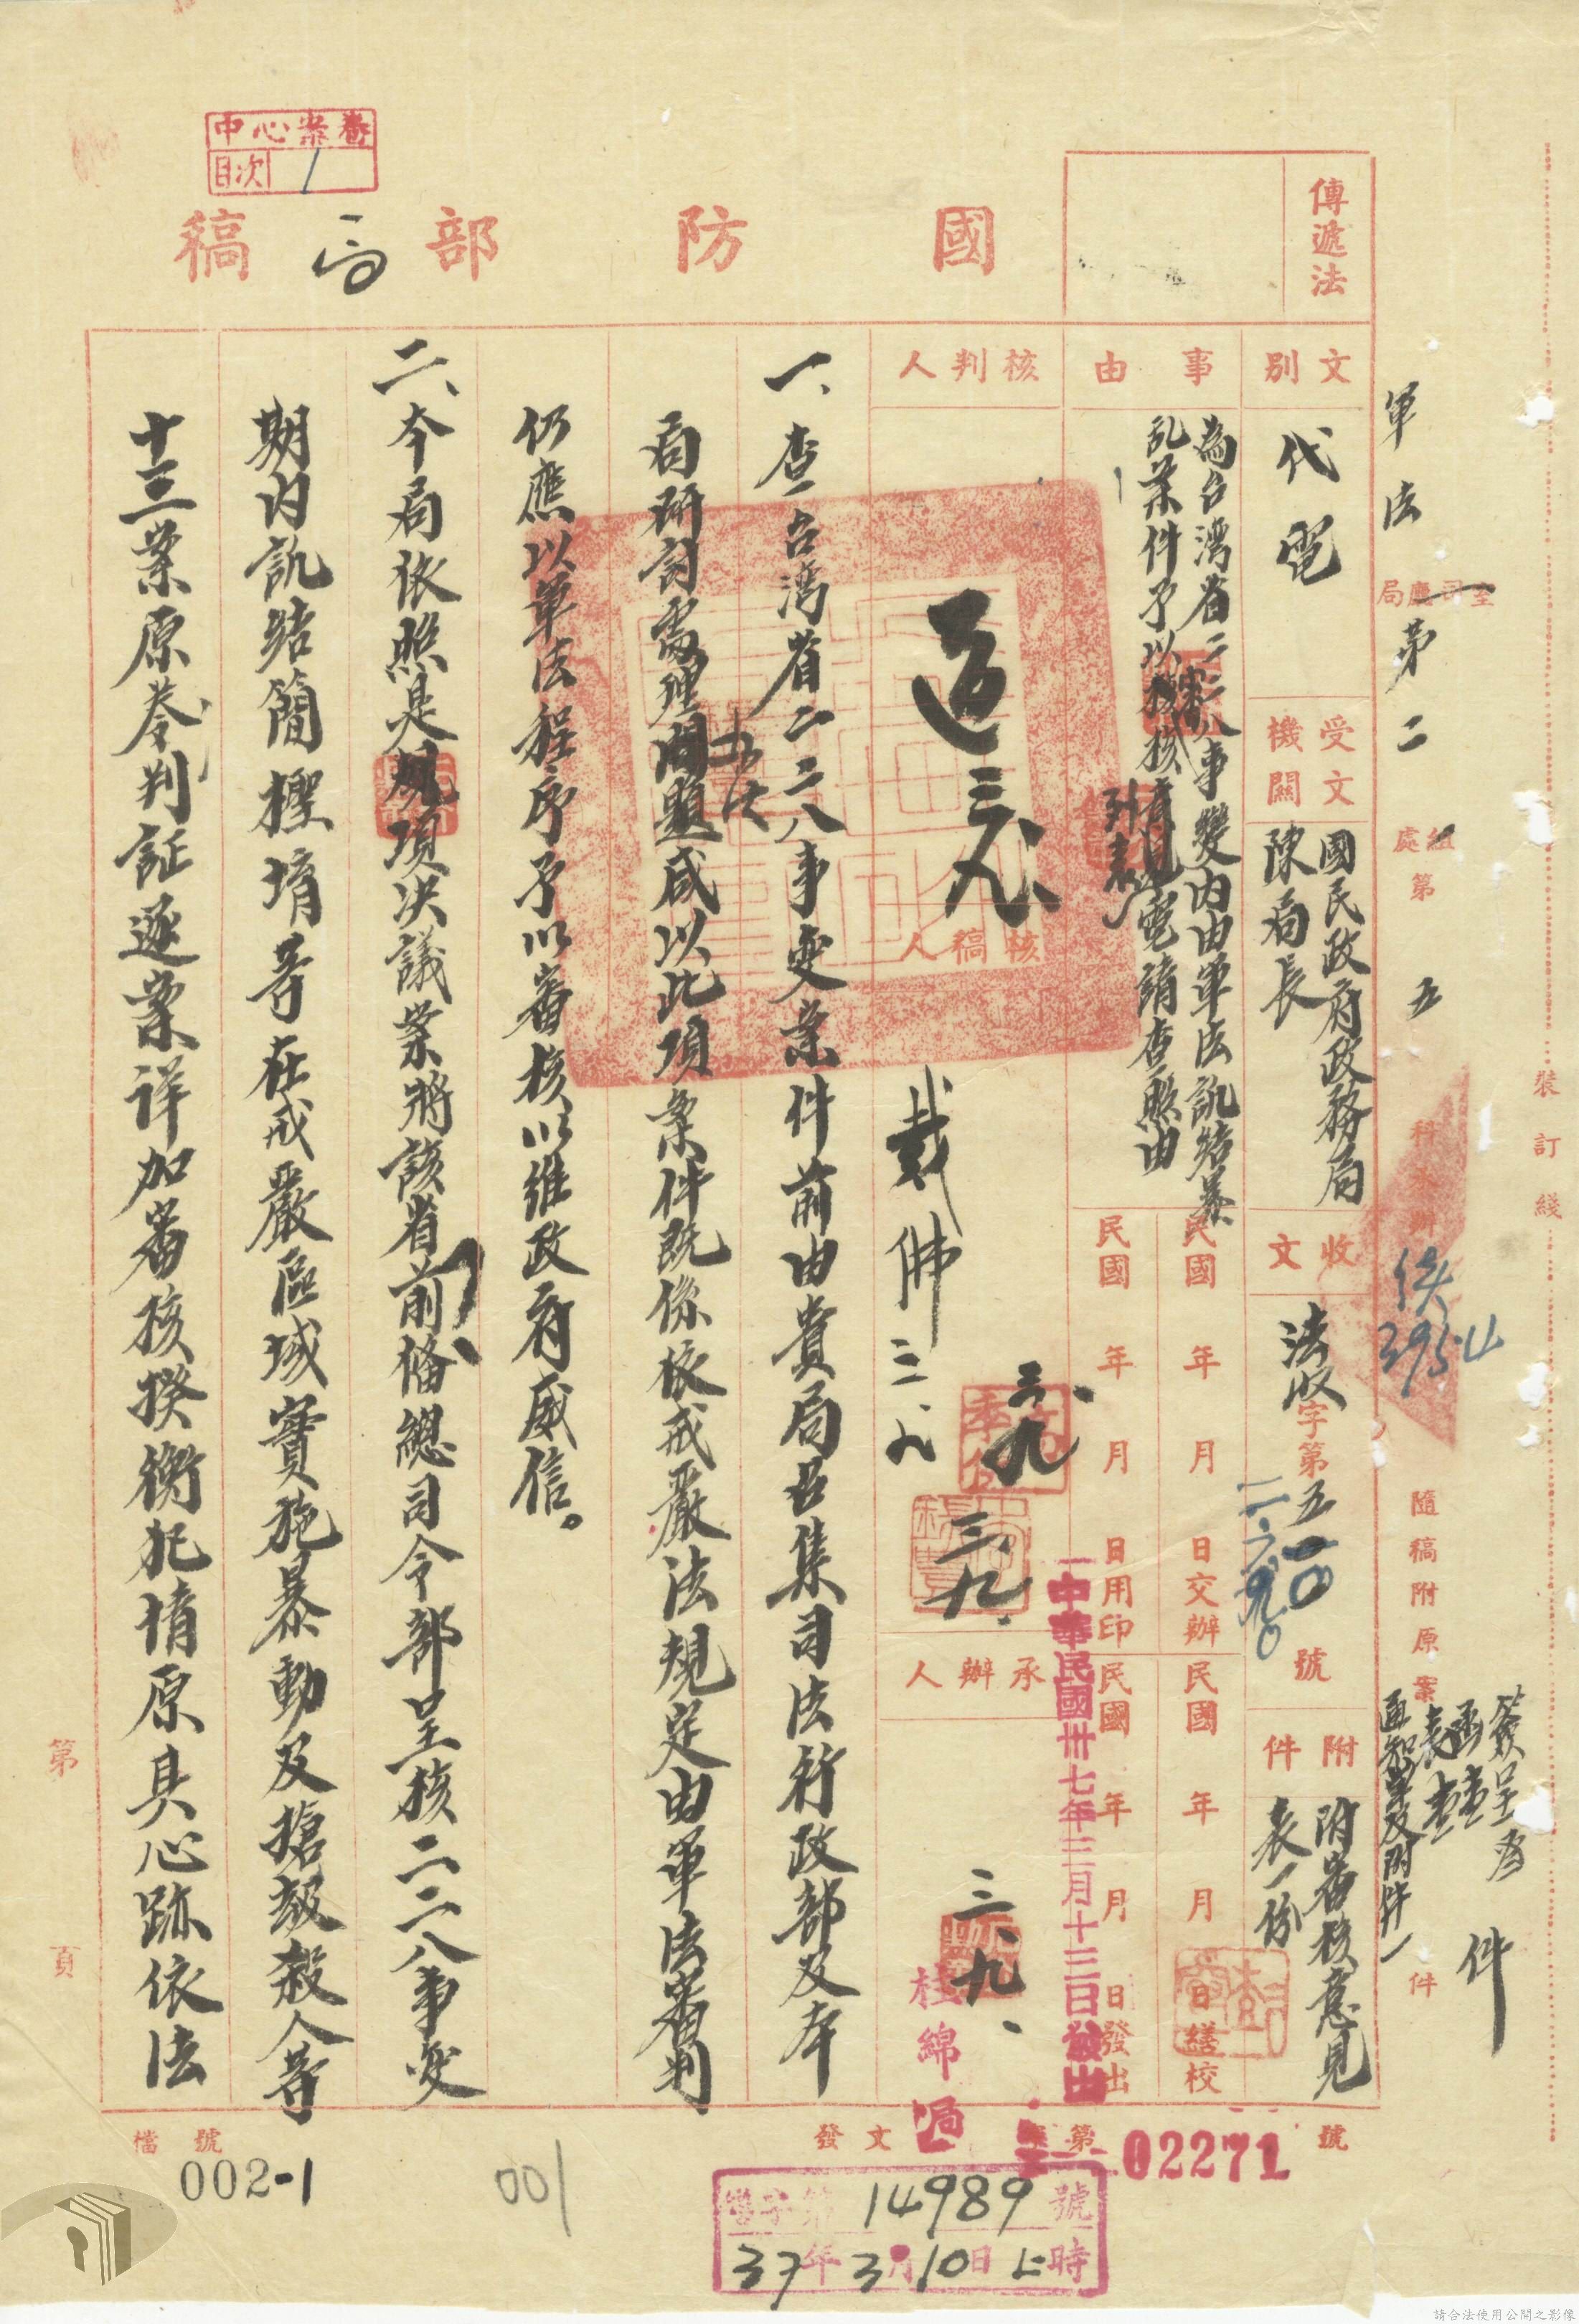 中心案卷
目次 1
國防部稿
傳遞法
文別
代電
受文機關
國民政府政務局
陳局長
收文
法收字第五一〇號
二六九〇
附件
附審核意見
表一份
事由
為台灣省二二八事變內由軍法訊結暴
亂案件予以審核
列表電請查照由
民國 年 月 日交辦
民國 年 月 日繕校
民國 年 月 日用印
民國 年 月 日發出
中華民國卅七年三月十三日發出
核判人
核稿人
三八
戴佛 三、八
三、九
三、九
承辦人
三、九、
桂綿
局
一、查台灣省二二八事变案件前由貴局召集司法行政部及本
局研討處理辦法咸以此項案件既係依戒嚴法規定由軍法審判
仍應以軍法程序予以審核以維政府威信。
二、本局依照是項決議業將該省前俻總司令部呈核二二八事变
期内訊結簡檉堉等在戒嚴區域實施暴動及搶刼殺人等
十三案原卷判証逐案詳加審核揆衡犯情原具心跡依法
軍法局第二處第五科
組
司
廳
承辦
隨稿附原案
件
簽呈
函壹
表壹
通知單及附件一
件
供
39514
裝訂綫
第 頁
發文
第02271號
檔號
002-1
001
第14989號
37年3月10日上時
請合法使用公開之影像